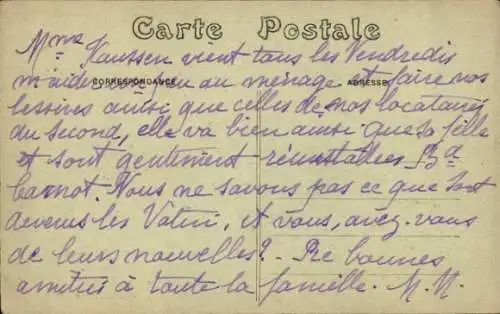 Carte Postale
CORRESPONDANCE
ADRESSE
Mme Haussen vient tous les Vendredis
m'aider un peu au ménage et faire nos
lessives ainsi que celles de nos locataires
du second, elle va bien ainsi que sa fille
et sont gentiment réinstallées Bd
Carnot. Nous ne savons pas ce que sont
devenus les Vatin, et vous, avez-vous
de leurs nouvelles? - Bonnes
amitiés à toute la famille. M. M.